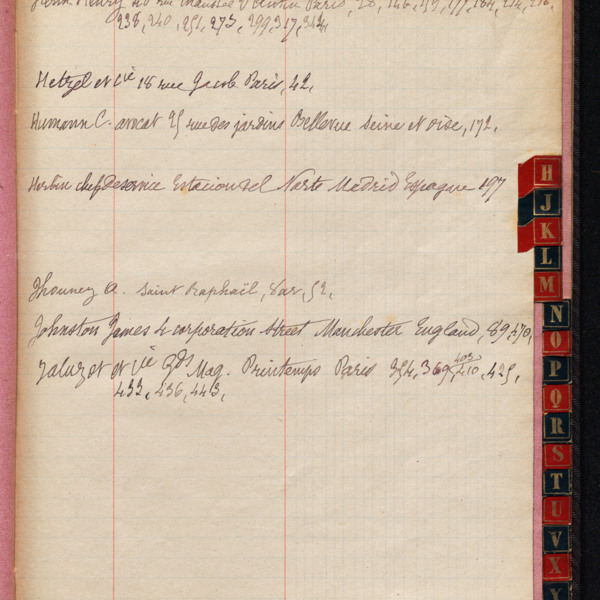 Henry rue Chaussée d'Antin Paris, 28, 146, 159, 177, 184, 214, 216,
238, 240, 251, 273, 299, 317, 324
Hetzel et Cie 18 rue Jacob Paris, 42,
Humann C. avocat 25 rue des jardins Bellevue Seine et Oise, 172,
Herbin chef de service Estacion del Norte Madrid Espagne 197
Jhouney A. Saint Raphaël, Var, 52,
Johnston James 4 corporation Street Manchester England, 89, 470,
403
Jaluzot et Cie Gds Mag. Printemps Paris 354, 369, 410, 425,
433, 436, 443,
H
J
K
L
M
N
O
P
Q
R
S
T
U
V
X
Y